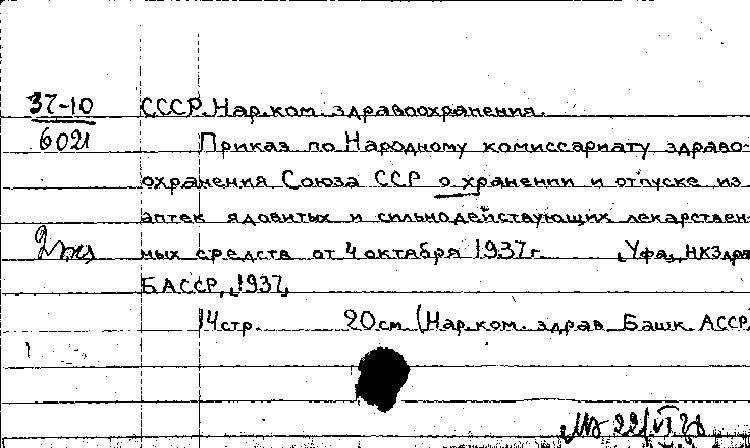 37-10 СССР. Нар.ком. здравоохранения.
6021 Приказ по Народному комиссариату здраво-
охранения Союза ССР о хранении и отпуске из
аптек ядовитых и сильнодействующих лекарствен-
2 экз ных средств от 4 октября 1937 г. [Уфа], НКЗдрав
БАССР, [1937]
14 стр. 20 см (Нар.ком. здрав. Башк. АССР)
22/VI